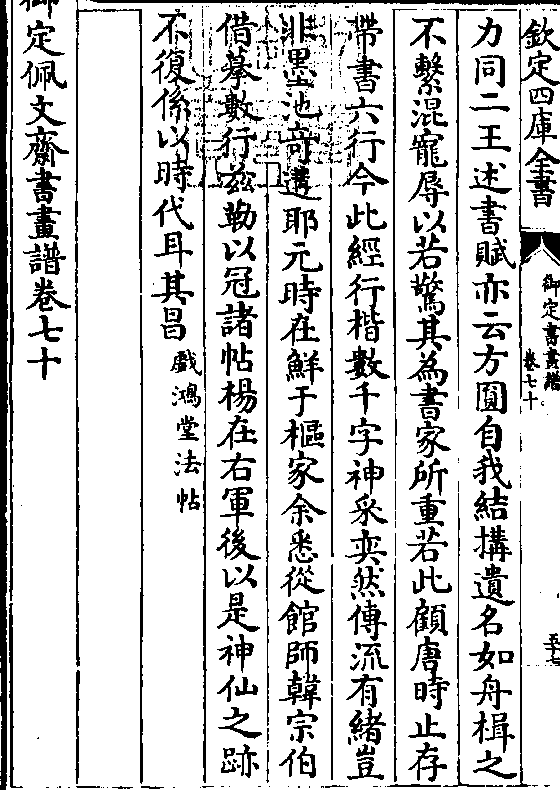 欽定四庫全書
御定書畫譜
卷七十
力同二王述書賦亦云方圓自我結搆遺名如舟楫之
不繫混寵辱以若驚其為書家所重若此顧唐時止存
帶書六行今此經行楷數千字神采奕然傳流有緒豈
非墨池奇遘耶元時在鮮于樞家余悉從館師韓宗伯
借摹數行茲勒以冠諸帖楊在右軍後以是神仙之跡
不復係以時代耳其昌
戲鴻堂法帖
御定佩文齋書畫譜卷七十